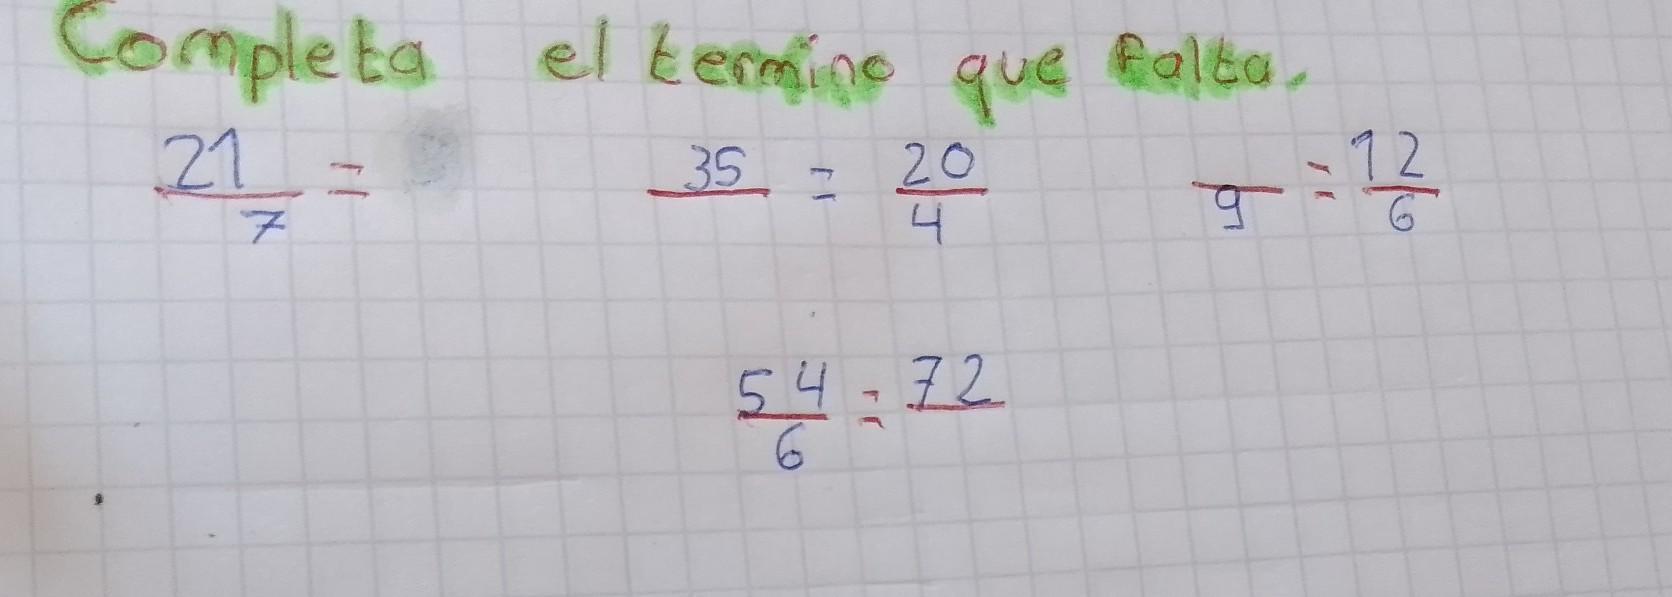 Completa el termino que falta.
21/7 = 35/ = 20/4 /9 = 12/6
54/6 = 72/